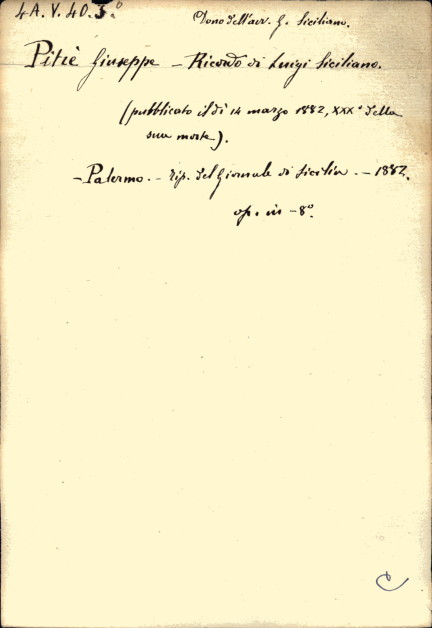 4A.V.40.3.°
Dono dell'avv. G. Siciliano.
Pitrè Giuseppe – Ricordo di Luigi Siciliano.
(pubblicato il dì 14 marzo 1882, XXX° della
sua morte).
– Palermo. – Tip. del Giornale di Sicilia. – 1882.
op. in – 8°.